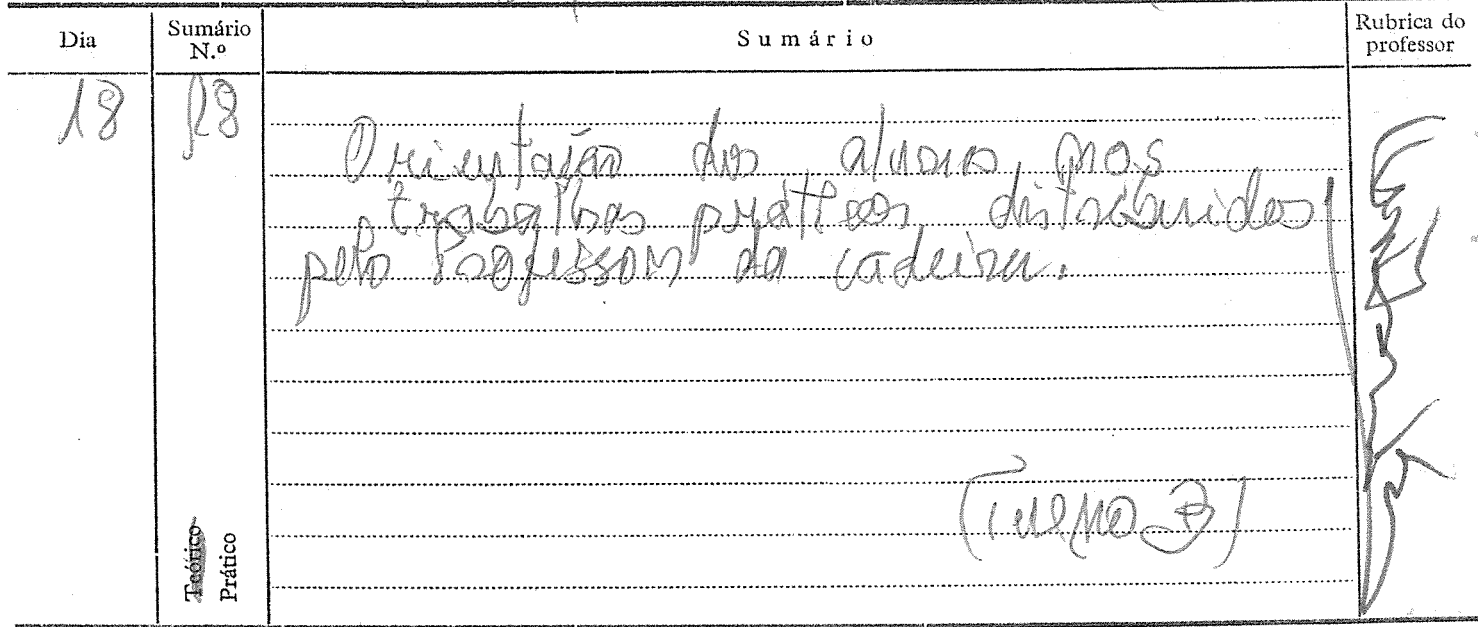 Dia
Sumário N.º
Sumário
Rubrica do professor
18
28
Orientação dos alunos nos
trabalhos práticos distribuidos
pelo Professor da cadeira.
(Turma B)
Teórico
Prático